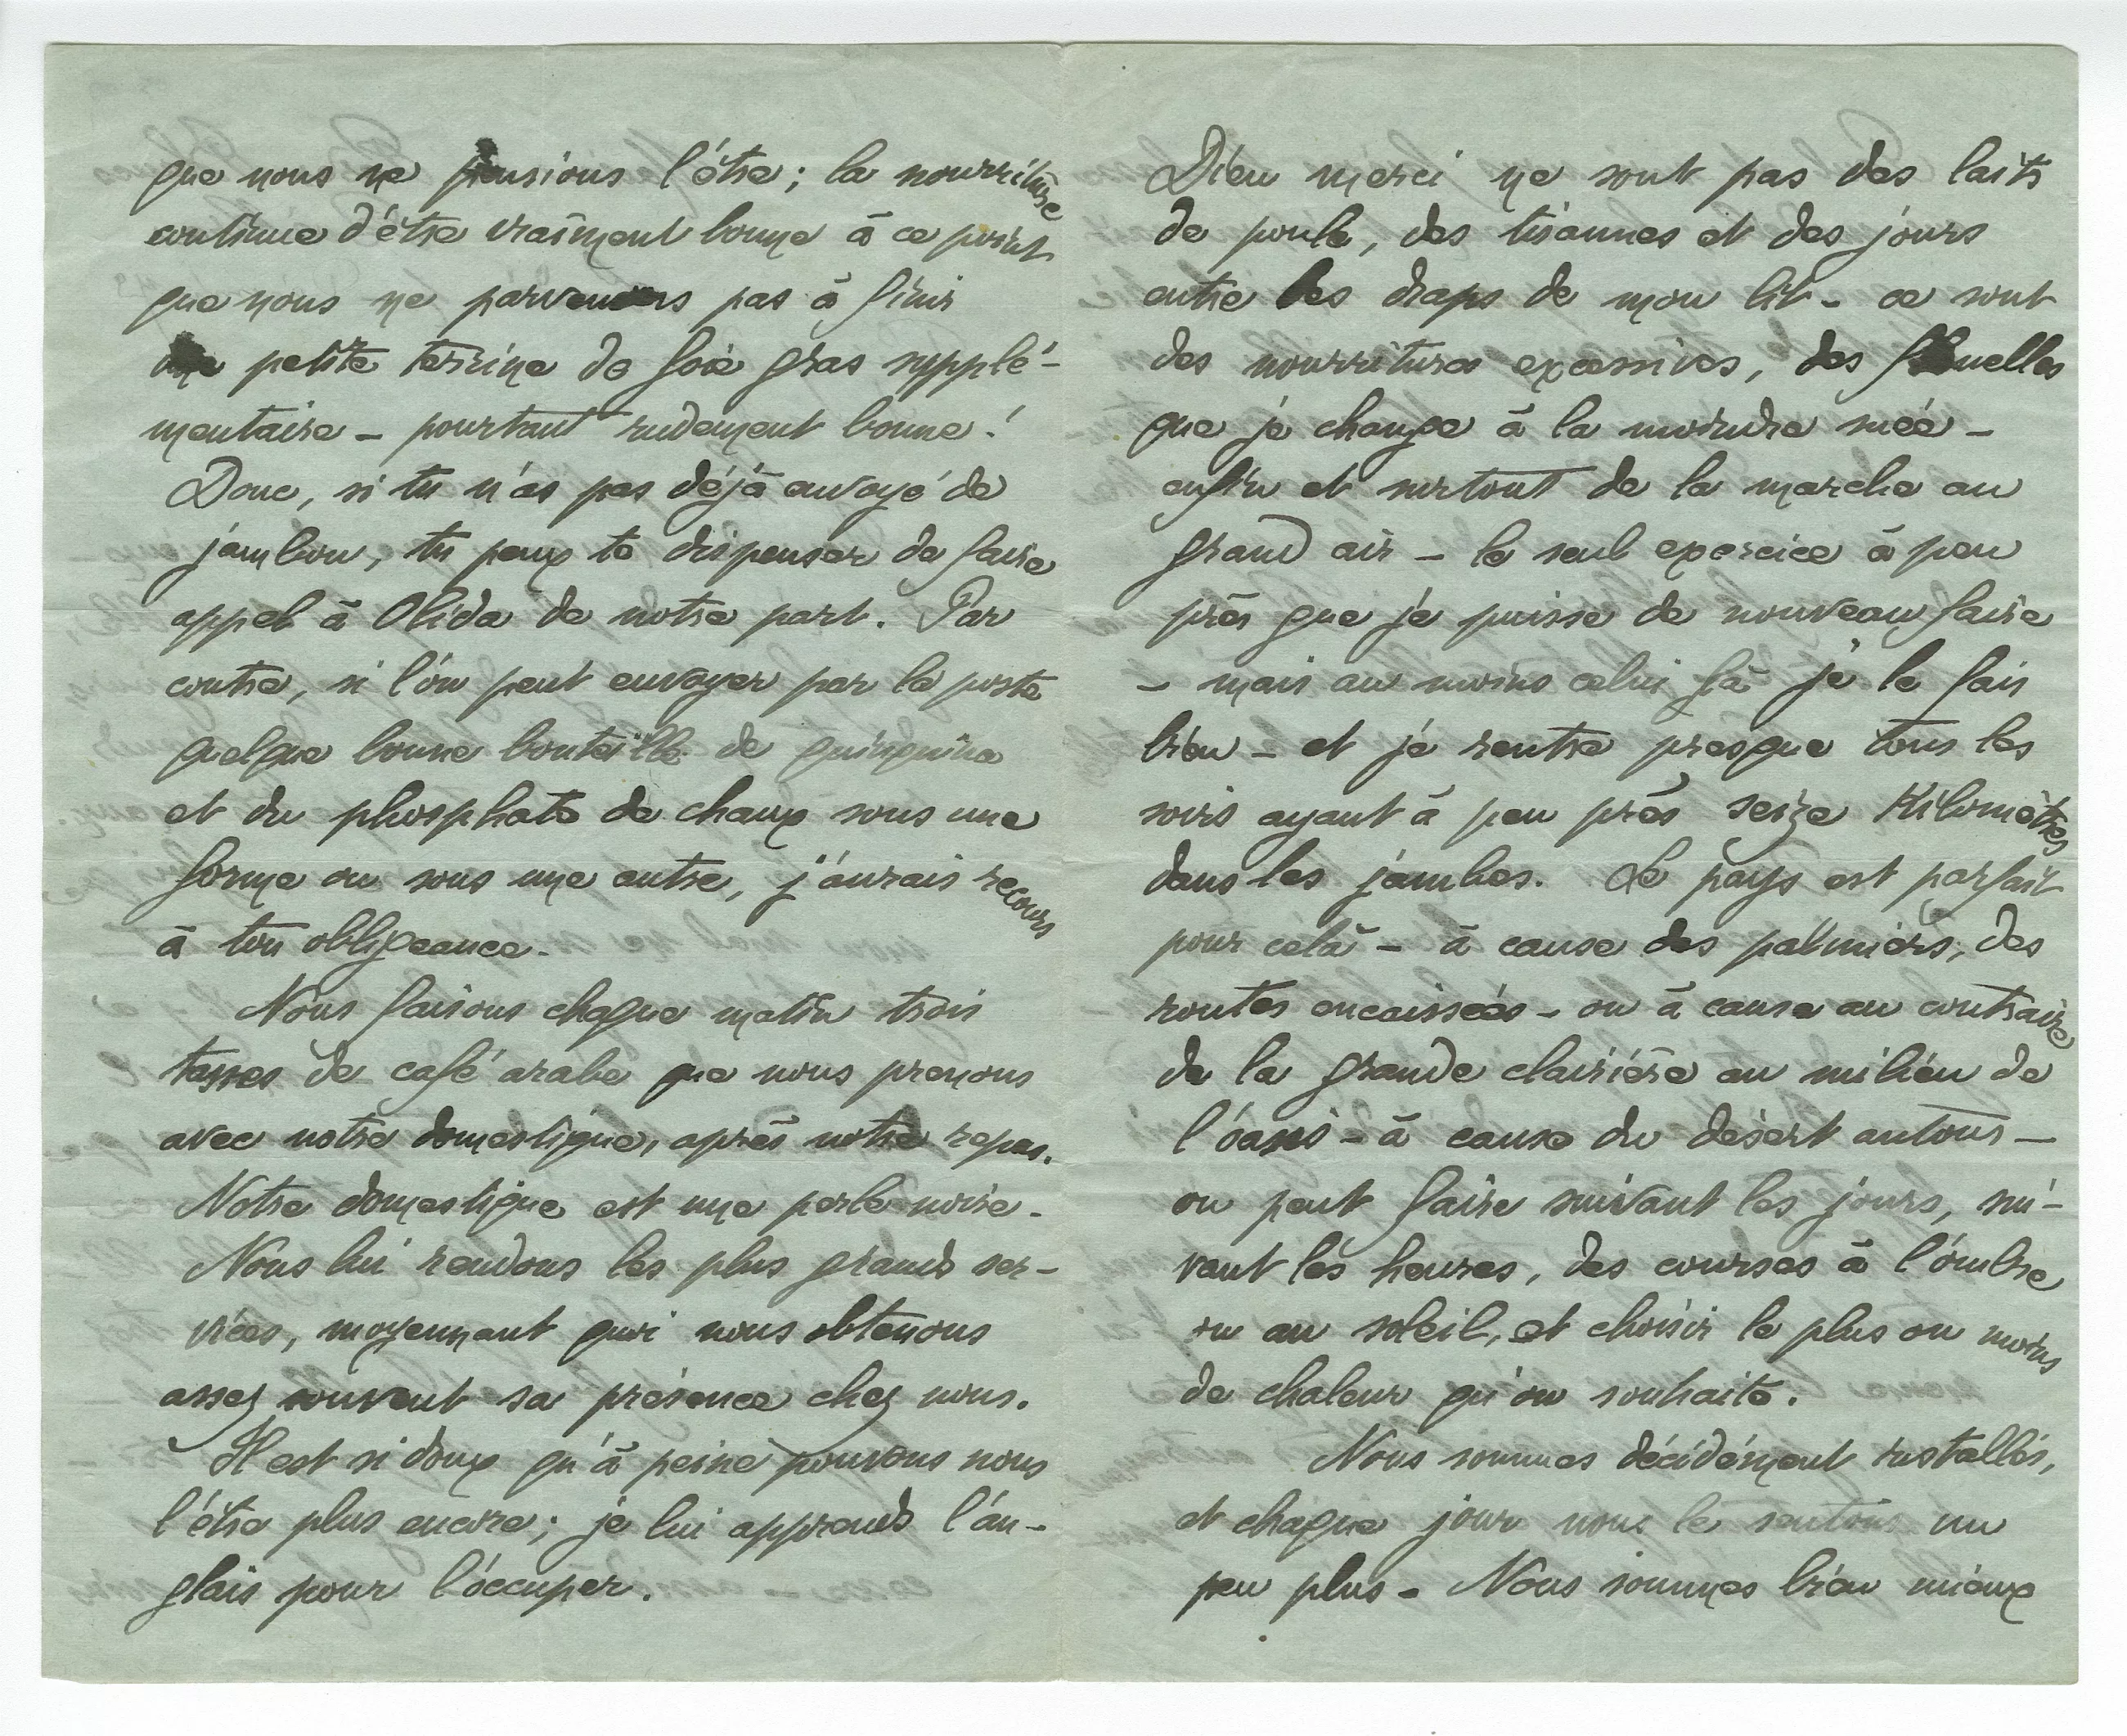 que nous ne pensions l'être ; la nourriture
continue d'être vraiment bonne à ce point
que nous ne parvenons pas à finir
une petite terrine de foie gras supplé-
mentaire – pourtant rudement bonne !
Donc, si tu n'as pas déjà envoyé de
jambon, tu peux te dispenser de faire
appel à Olida de notre part. Par
contre, si l'on peut envoyer par la poste
quelque bonne bouteille de quinquina
et du phosphate de chaux sous une
forme ou sous une autre, j'aurais recours
à ton obligeance –
Nous faisons chaque matin trois
tasses de café arabe que nous prenons
avec notre domestique, après notre repas.
Notre domestique est une perle noire –
Nous lui rendons les plus grands ser-
vices, moyennant quoi nous obtenons
assez souvent sa présence chez nous.
Il est si doux qu'à peine pouvons nous
l'être plus encore ; je lui apprends l'an-
glais pour l'occuper.
Dieu merci ne sont pas des laits
de poule, des tisannes et des jours
entre les draps de mon lit – ce sont
des nourritures excessives, des flanelles
que je change à la moindre suée –
enfin et surtout de la marche au
grand air – le seul exercice à peu
près que je puisse de nouveau faire
– mais au moins celui là je le fais
bien – et je rentre presque tous les
soirs ayant à peu près seize Kilomètres
dans les jambes. Le pays est parfait
pour celà – à cause des palmiers, des
routes encaissées – ou à cause au contraire
de la grande clairière au milieu de
l'oasis – à cause du désert autour –
on peut faire suivant les jours, sui-
vant les heures, des courses à l'ombre
ou au soleil, et choisir le plus ou moins
de chaleur qu'on souhaite.
Nous sommes décidément installés,
et chaque jour nous le sentons un
peu plus – Nous sommes bien mieux